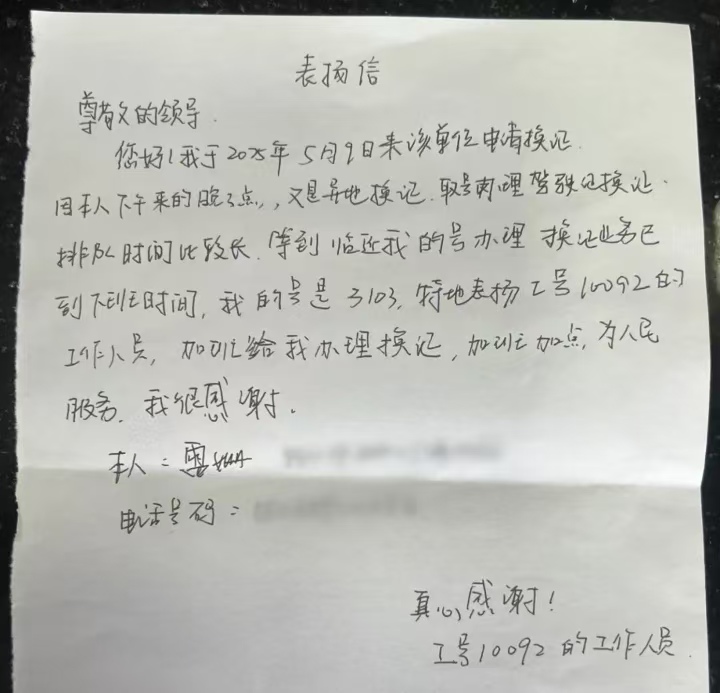 表扬信
尊敬的领导.
您好!我于2025年5月9日来该单位申请换记.
因本人下午来的晚了点,,又是异地换记.取号办理驾驶记换记.
排队时间比较长.等到临近我的号办理 换记业务已
到下班时间,我的号是3103,特地表扬工号10092的
工作人员,加班给我办理换记,加班加点,为人民
服务.我很感谢.
本人:雷
电话号码:
真心感谢!
工号10092的工作人员.